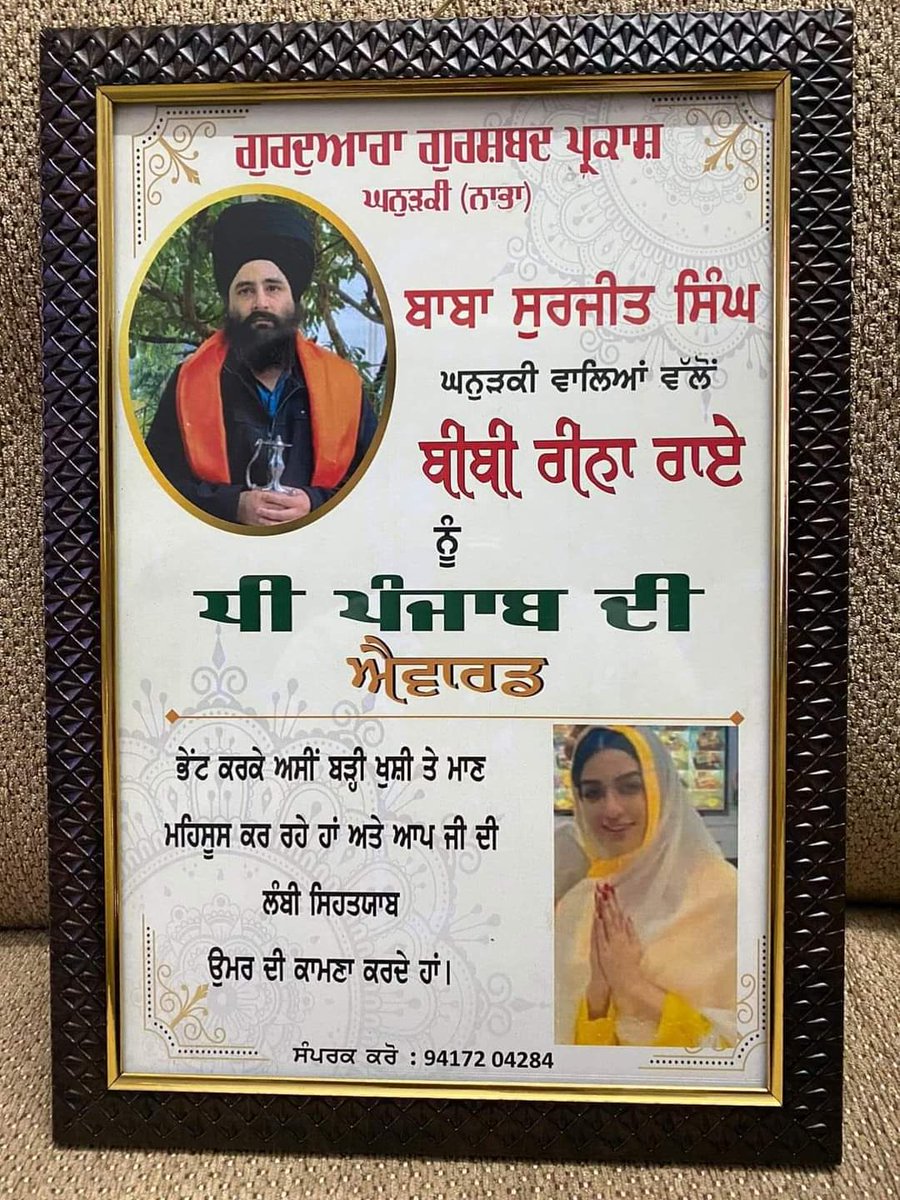 ਗੁਰਦੁਆਰਾ ਗੁਰਸ਼ਬਦ ਪ੍ਰਕਾਸ਼
ਘਨੁੜਕੀ (ਨਾਭਾ)
ਬਾਬਾ ਸੁਰਜੀਤ ਸਿੰਘ
ਘਨੁੜਕੀ ਵਾਲਿਆਂ ਵੱਲੋਂ
ਬੀਬੀ ਰੀਨਾ ਰਾਏ
ਨੂੰ
ਧੀ ਪੰਜਾਬ ਦੀ
ਐਵਾਰਡ
ਭੇਂਟ ਕਰਕੇ ਅਸੀਂ ਬੜ੍ਹੀ ਖੁਸ਼ੀ ਤੇ ਮਾਣ
ਮਹਿਸੂਸ ਕਰ ਰਹੇ ਹਾਂ ਅਤੇ ਆਪ ਜੀ ਦੀ
ਲੰਬੀ ਸਿਹਤਯਾਬ
ਉਮਰ ਦੀ ਕਾਮਣਾ ਕਰਦੇ ਹਾਂ।
ਸੰਪਰਕ ਕਰੋ : 94172 04284